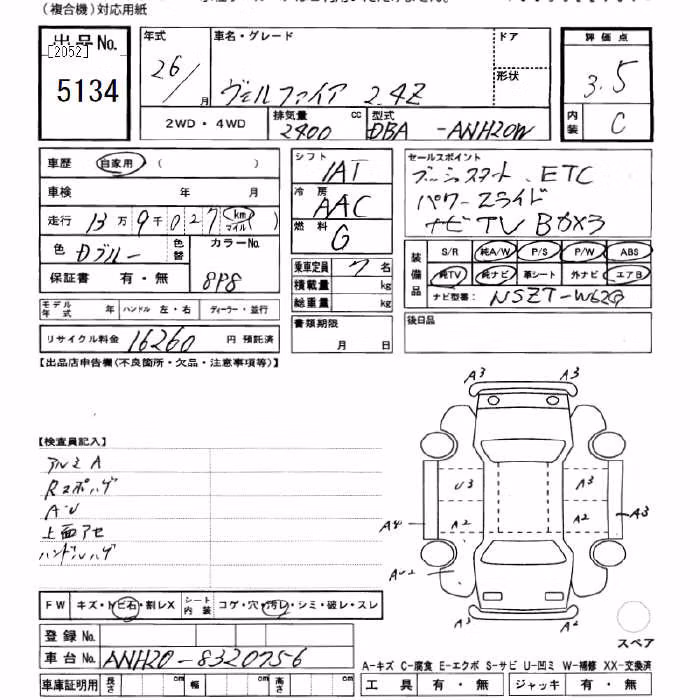 (複合機)対応用紙
出品No.
[2052]
5134
年式
26/
月
車名・グレード
ヴェルファイア 2.4Z
ドア
形状
評価点
3.5
内装
C
2WD・4WD
排気量
2400
cc
型式
DBA -ANH20W
車歴
自家用 ( )
車検 年 月
走行 13万9千027 (km マイル)
色 Dブルー
色替
カラーNo.
8P8
保証書 有・無
モデル年式 年
ハンドル 左・右
ディーラー・並行
リサイクル料金 16260 円 預託済
シフト
IAT
冷房
AAC
燃料
G
乗車定員 7 名
積載量 kg
総重量 kg
書類期限
月 日
セールスポイント
プッシュスタート、ETC
パワースライド
ナビTV Bカメラ
装備品
S/R
純A/W
P/S
P/W
ABS
純TV
純ナビ
革シート
外ナビ
エアB
ナビ型番: NSZT-W62G
後日品
【出品店申告欄(不良箇所・欠品・注意事項等)】
【検査員記入】
アルミA
Rスポハゲ
A・U
上面アセ
ハンドルハゲ
A3
A3
U3
A3
A2
A2
A4
A3
AU2
A2
A2
スペア
FW
キズ・トビ石・割レX
シート内装
コゲ・穴・汚レ・シミ・破レ・スレ
登録No.
車台No.
ANH20-8320756
車庫証明用
長さ cm
幅 cm
高さ cm
A-キズ C-腐食 E-エクボ S-サビ U-凹ミ W-補修 XX-交換済
工具 有・無
ジャッキ 有・無